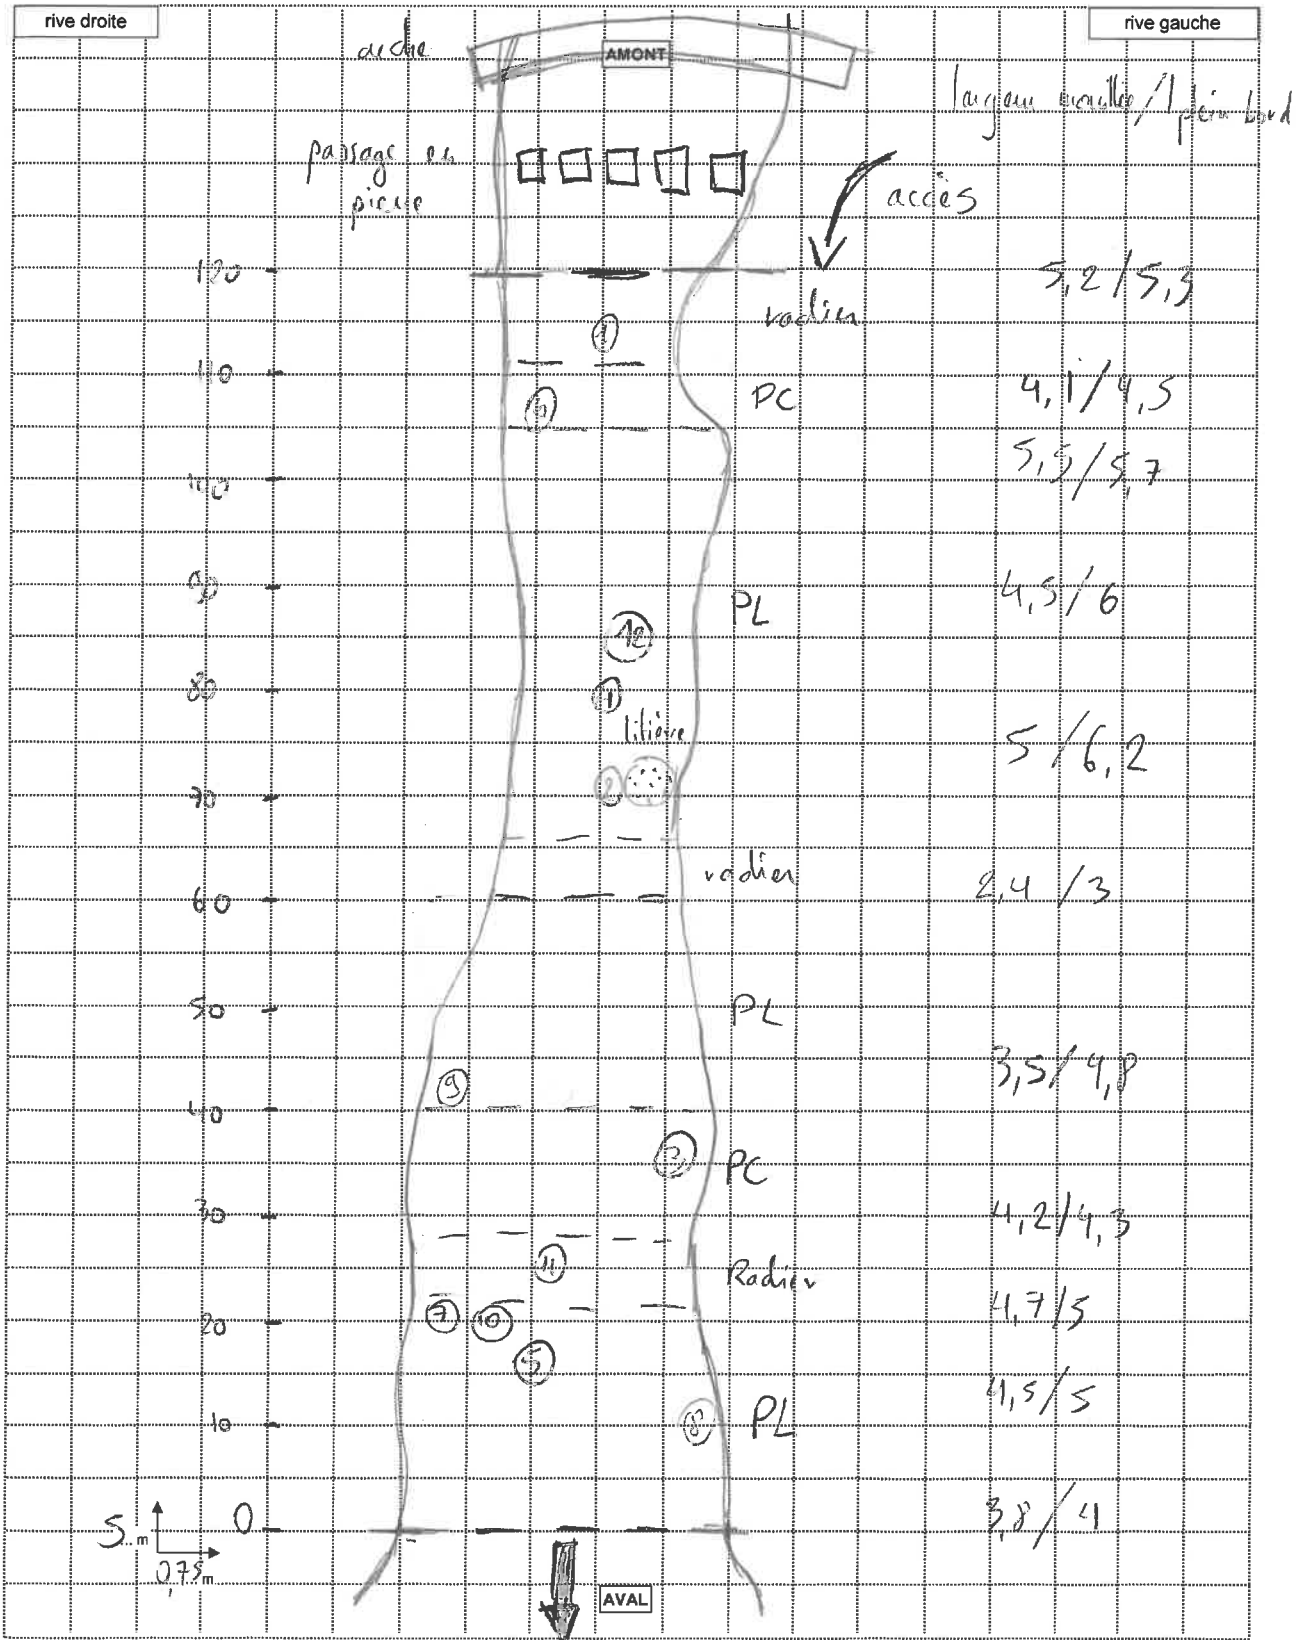 rive droite
rive gauche
AMONT
largeur mouillée / l plein bord
passage en
pierre
accès
120
5,2 / 5,3
radier
1
110
PC
4,1 / 4,5
6
5,5 / 5,7
100
90
PL
4,5 / 6
12
80
11
litière
5 / 6,2
2
70
radier
2,4 / 3
60
50
PL
3,5 / 4,8
9
40
3
PC
30
4,2 / 4,3
Radier
7
10
20
4,7 / 5
5
4,5 / 5
8
PL
10
0
3,8 / 4
5 m
0,75 m
AVAL